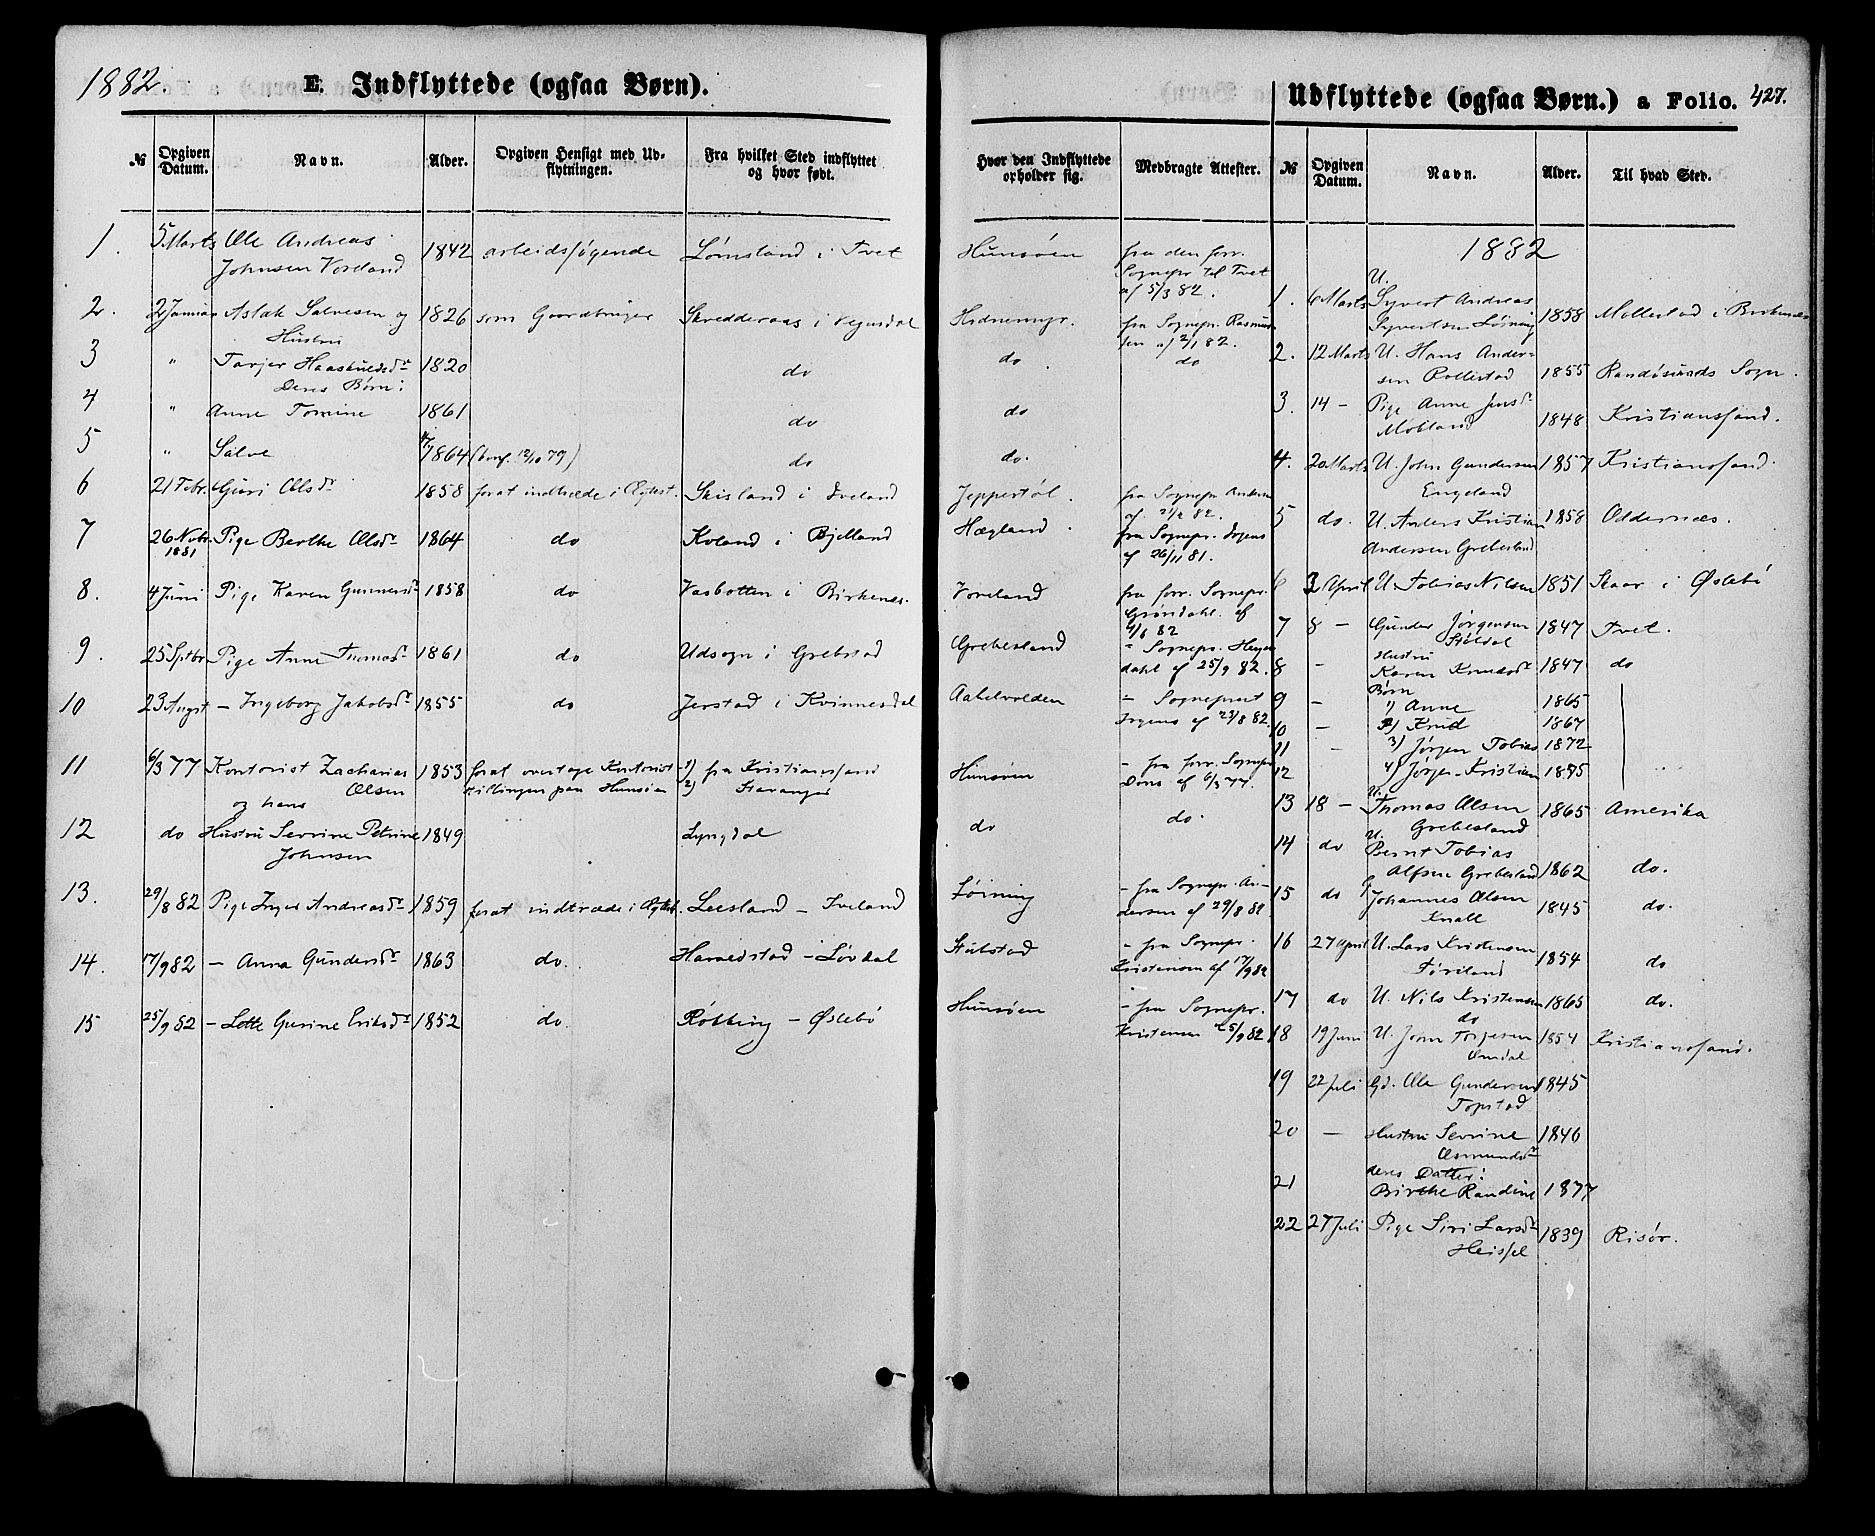 1882.
E. Indflyttede (ogsaa Børn).
№
Opgiven Datum.
Navn.
Alder.
Opgiven Hensigt med Udflytningen.
Fra hvilket Sted indflyttet og hvor født.
Hvor den Indflyttede opholder sig.
Medbragte Attester.
1. 5 Marts Ole Andreas 1842 arbeidssøgende Lømsland i Tvet Hunsøen fra den forr.
Johnsen Voreland Sognepr. til Tvet
af 5/3 82.
2. 2 Januar Aslak Salvesen og 1826 som Gaardbruger Skredderaas i Vegusdal Hidnemyr. fra Sognepr. Rasmus-
Hustru sen af 2/1 82.
3 " Tarjer Haaskuldsdr 1820 do do. do
Deres Børn:
4 " Anne Tomine 1861 do do
5 " Salve 1864 (conf. 12/10 79) do do.
6 21 Febr. Guri Olsdr 1858 forat indtræde i Ægtest. Skisland i Iveland Jeppestøl. fra Sognepr. Andersen
af 21/2 82.
7 26 Novbr. Pige Berthe Olsdr 1864 do Kvland i Bjelland Hægland. fra Sognepr. Irgens
1881 af 26/11 81.
8. 4 Juni Pige Karen Gunnersdr 1858 do Vasbotten i Birkenes. Voreland fra forr. Sognepr.
Grøndahl. af
4/6 82
9. 25 Sptbr. Pige Anne Thomasdr 1861 do Udsogn i Grebstad Grebesland " Sognepr. Heyer-
dahl af 25/9 82.
10 23 Augst – Ingeborg Jakobsdr 1855 do Jerstad i Kvinnesdal Aabelvolden – Sogneprest
Irgens af 23/8 82.
11 6/3 77 Kontorist Zacharias 1853 forat overtage Kontorist- 1) fra Kristianssand Hunsøen – fra forr. Sognepr
Olsen stillingen paa Hunsøen 2) Stavanger Dons af 6/3 77.
og hans
12 do Hustru Sevrine Petrine 1849 Lyngdal do do.
Johnsen
13. 29/8 82 Pige Inger Andreasdr 1859 forat indtræde i Ægtest. Leesland – Iveland Løining – fra Sognepr. An-
dersen af 29/8 82
14. 17/9 82 – Anna Gundersdr 1863 do. Haraldstad – Løvdal Stubstad – fra Sognepr.
Kristensen af 17/9 82
15 25/9 82 – Lotte Gurine Eriksdr 1852 do. Røtting – Øslebø Hunsøen – fra Sognepr.
Kristensen 25/9 82
Udflyttede (ogsaa Børn.) a Folio. 427.
№
Opgiven Datum.
Navn.
Alder.
Til hvad Sted.
1882
U.
1. 6 Marts Syvert Andreas
Syvertsen Løining 1858 Mollestad i Birkenes
2. 12 Marts U. Hans Ander-
sen Rollestad 1855 Randøsunds Sogn.
3. 14 – Pige Anne Jensdr
Mobland 1848 Kristianssand.
4. 20 Marts U. John Gundersen 1857 Kristianssand.
Engeland
5 do. U. Anders Kristian 1858 Oddernæs.
Andersen Grebesland
6 3 April U. Tobias Nilsen 1851 Skaar i Øslebø
7 8 – Gunder Jørgensen 1847 Tvet.
Støldal
Hustru
8 – Karen Knudsdr 1847 do
Børn
9 – 1) Anne 1865
10 – 2) Knud 1867
11 – 3) Jørgen Tobias 1872
12 4) Jørgen Kristian 1875
13 18 – U. Thomas Olsen 1865 Amerika
Grebesland
U.
14 do Bernt Tobias
Alfsen Grebesland 1862 do.
15 do Johannes Olsen
Knall 1845 do.
16 27 April U. Lars Kristensen
1854 do
17 do U. Nils Kristensen 1865 do.
do
18 19 Juni U. Jørn Torjesen 1854 Kristianssand.
Omdal
19 22 Juli Gd. Ole Gundersen 1845
Topstad
20 – Hustru Sevrine 1846
Osmundsdr
deres Datter:
21 Birthe Randine 1877
22 27 Juli Pige Siri Larsdr 1839 Risør.
Heissel